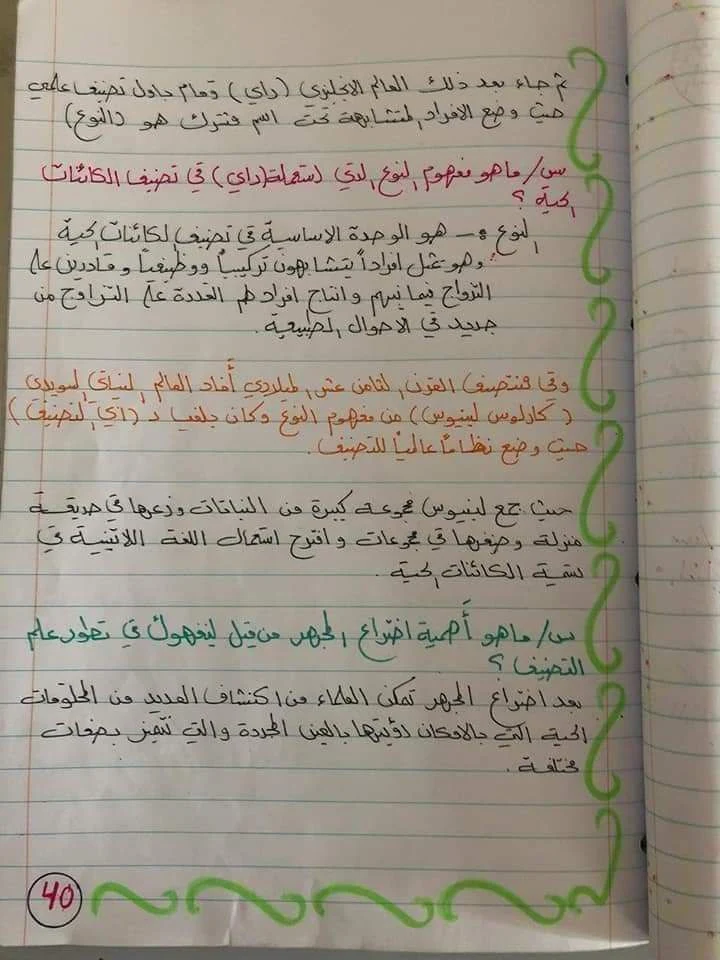 ثم جاء بعد ذلك العالم الانجليزي (راي) وقام بحاول تصنيف علمي
حيث وضع الافراد المتشابهة تحت اسم مشترك هو (النوع)
س/ ماهو مفهوم النوع الذي استعملة (راي) في تصنيف الكائنات
الحية ؟
النوع :- هو الوحدة الاساسية في تصنيف الكائنات الحية
وهو يمثل افراداً يتشابهون تركيبياً ووظيفياً وقادرين على
التزواج فيما بينهم وانتاج افراد لهم القدرة على التزاوج من
جديد في الاحوال الطبيعية .
وفي منتصف القرن الثامن عشر الميلادي أفاد العالم النباتي السويدي
(كارلوس لينيوس) من مفهوم النوع وكان يلقب بـ (أبي التصنيف)
حيث وضع نظاماً عالمياً للتصنيف .
حيث جمع لينيوس مجموعة كبيرة من النباتات وزرعها في حديقة
منزلة وصنفها في مجموعات واقترح استعمال اللغة اللاتينية في
تسمية الكائنات الحية .
س/ ماهو أهمية اختراع المجهر من قبل ليفنهوك في تطور علم
التصنيف ؟
بعد اختراع المجهر تمكن العلماء من اكتشاف العديد من المخلوقات
الحية التي بالامكان رؤيتها بالعين المجردة والتي تتميز بصفات
مختلفة .
40